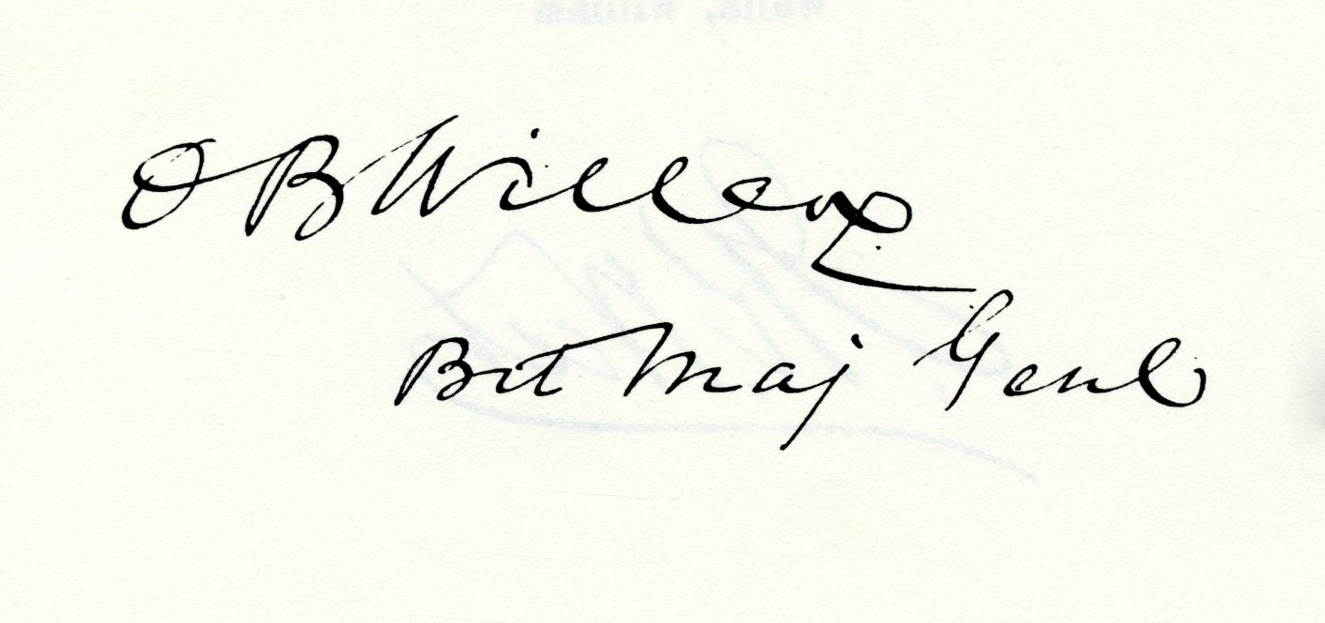 O B Willcox
Bvt Maj Genl